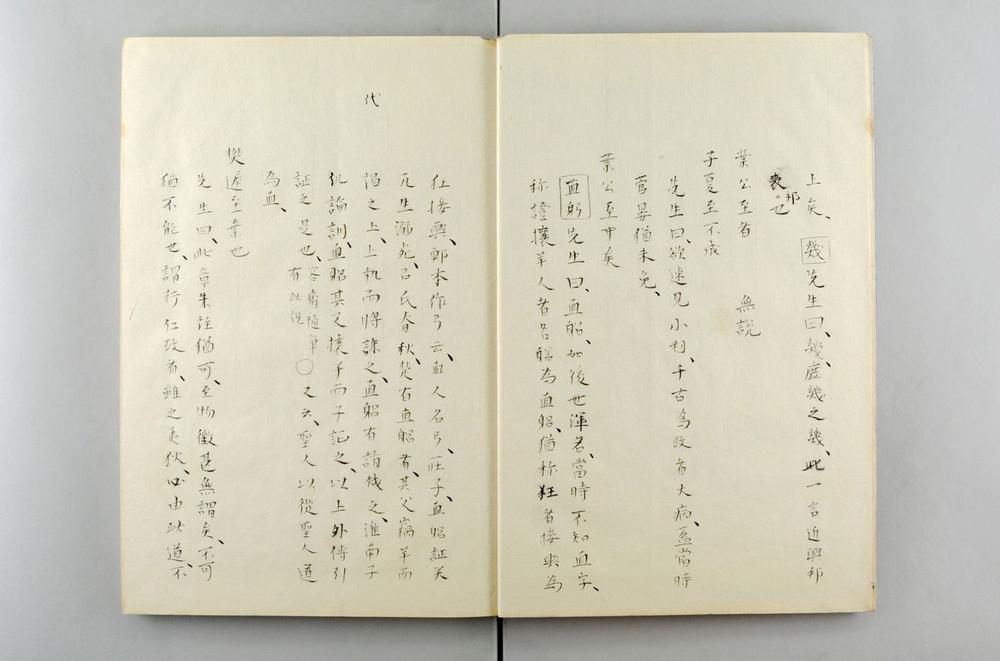 上矣、幾先生曰、幾庶幾之幾、此一言近興邦
喪邦也
葉公至者 無説
子夏至不成
先生曰、欲速見小利、千古為政者大病、盖當時
管晏猶未免、
葉公至中矣
直躬先生曰、直躬、如後世渾名、當時不知直字、
称證攘羊人者名躬為直躬、猶称狂者接輿為
狂接輿、鄭本作弓云、直人名弓、荘子、直躬証父
尾生溺死、呂氏春秋、楚有直躬者、其父竊羊而
謁之上、上執而将誅之、直躬有請代之、淮南子
代
氾論訓、直躬其父攘羊而子証之、以上外傳引
証之是也、容齋随筆有此説 ○又云、聖人以從聖人道
為直、
樊遲至棄也
先生曰、此章朱註猶可、至物徴甚無謂矣、不可
猶不能也、謂行仁政者、雖之夷狄、必由此道、不